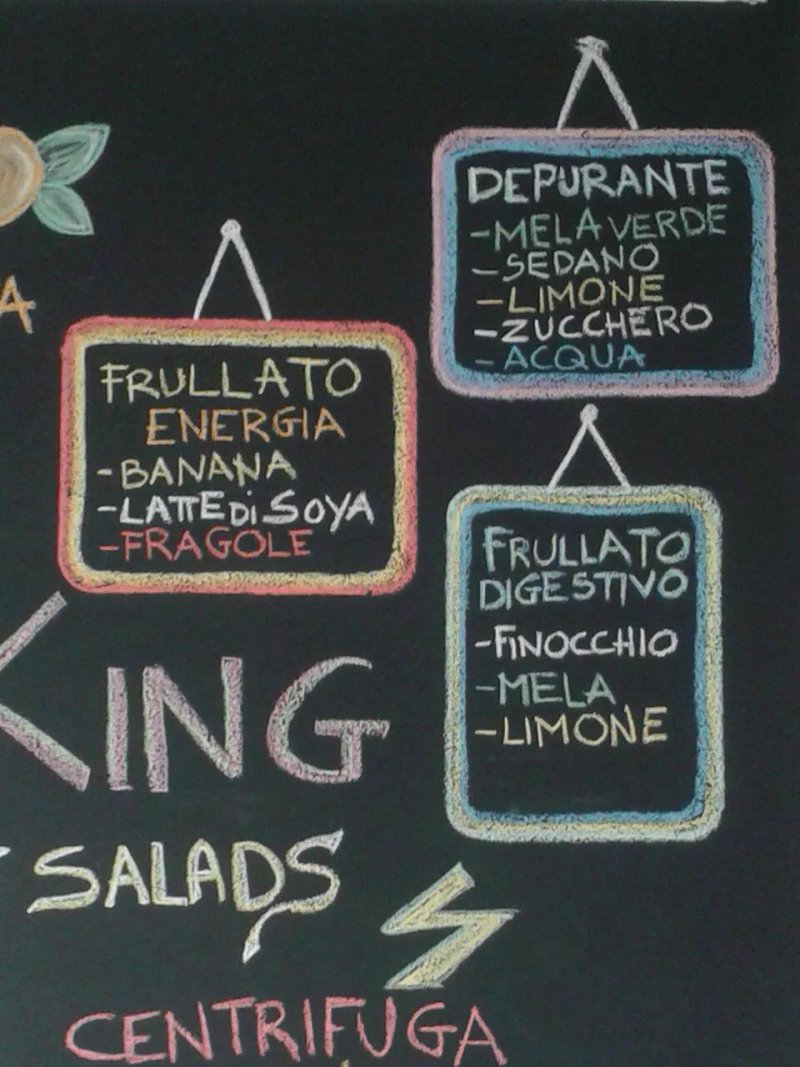 DEPURANTE
-MELA VERDE
-SEDANO
-LIMONE
-ZUCCHERO
-ACQUA
A
FRULLATO
ENERGIA
-BANANA
-LATTE Di SOYA
-FRAGOLE
FRULLATO
DIGESTIVO
-FiNOCCHIO
-MELA
-LIMONE
KING
SALADS
CENTRIFUGA